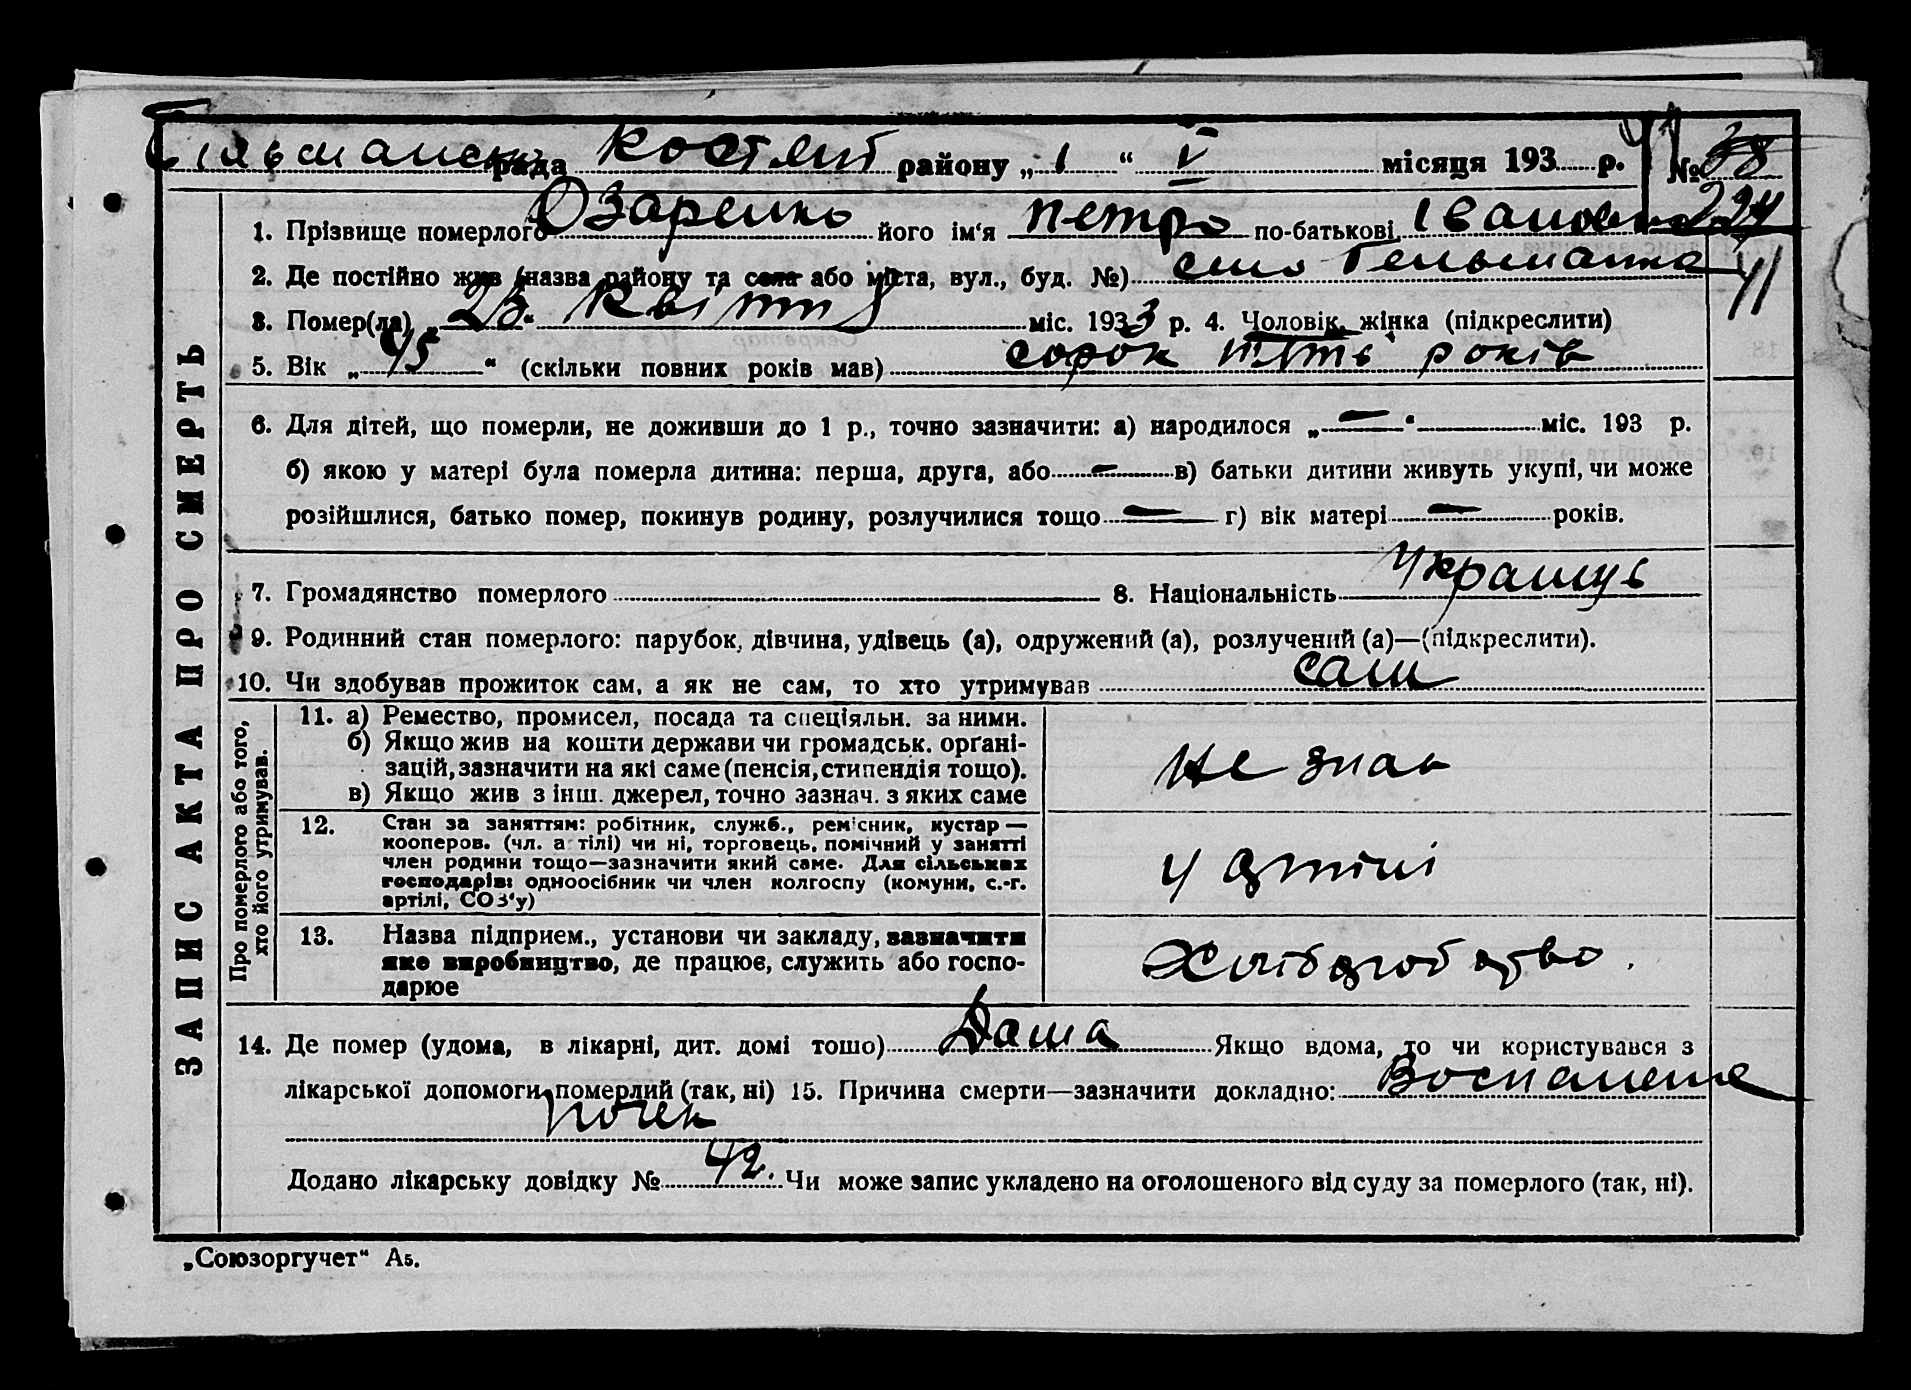 рада Костян району „1“ V місяця 193 р. № 38
224
1. Прізвище померлого Озаренко його ім'я Петро по-батькові Іванович
2. Де постійно жив (назва району та села або міста, вул., буд. №) село Гельманка
41
3. Помер(ла) „23“ Квітня міс. 1933 р. 4. Чоловік, жінка (підкреслити)
5. Вік „45“ (скільки повних років мав) сорок пять років
6. Для дітей, що померли, не доживши до 1 р., точно зазначити: а) народилося „—“ міс. 193 р.
б) якою у матері була померла дитина: перша, друга, або — в) батьки дитини живуть укупі, чи може
розійшлися, батько помер, покинув родину, розлучилися тощо — г) вік матері — років.
7. Громадянство померлого 8. Національність Украінць
9. Родинний стан померлого: парубок, дівчина, удівець (а), одружений (а), розлучений (а)—(підкреслити).
10. Чи здобував прожиток сам, а як не сам, то хто утримував сам
ЗАПИС АКТА ПРО СМЕРТЬ
Про померлого або того,
хто його утримував.
11. а) Ремество, промисел, посада та спеціяльн. за ними.
б) Якщо жив на кошти держави чи громадськ. орґані-
зацій, зазначити на які саме (пенсія, стипендія тощо).
в) Якщо жив з інш. джерел, точно зазнач. з яких саме
не знав
12. Стан за заняттям: робітник, служб., ремісник, кустар—
кооперов. (чл. артілі) чи ні, торговець, помічний у занятті
член родини тощо—зазначити який саме. Для сільських
господарів: одноосібник чи член колгоспу (комуни, с.-г.
артілі, СОЗ'у)
у артілі
13. Назва підприєм., установи чи закладу, зазначити
яке виробництво, де працює, служить або госпо-
дарює
Хліборобство.
14. Де помер (удома, в лікарні, дит. домі тошо) Дома Якщо вдома, то чи користувався з
лікарської допомоги померлий (так, ні) 15. Причина смерти—зазначити докладно: Воспаление
почек
Додано лікарську довідку № 42. Чи може запис укладено на оголошеного від суду за померлого (так, ні).
„Союзоргучет“ А5.